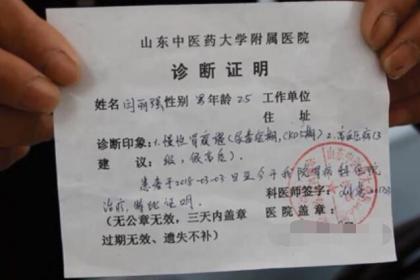 山东中医药大学附属医院
诊断证明
姓名 闫丽强 性别 男 年龄 25 工作单位
住 址
诊断印象：1.慢性肾衰竭（尿毒症期，CKD5期）2.高血压病（3
建 议： 级，很高危）。
患者于2015-03-03日至今于我院肾病科住院
治疗，特此证明。 科医师签字：
（无公章无效，三天内盖章 医院盖章：
过期无效、遗失不补）